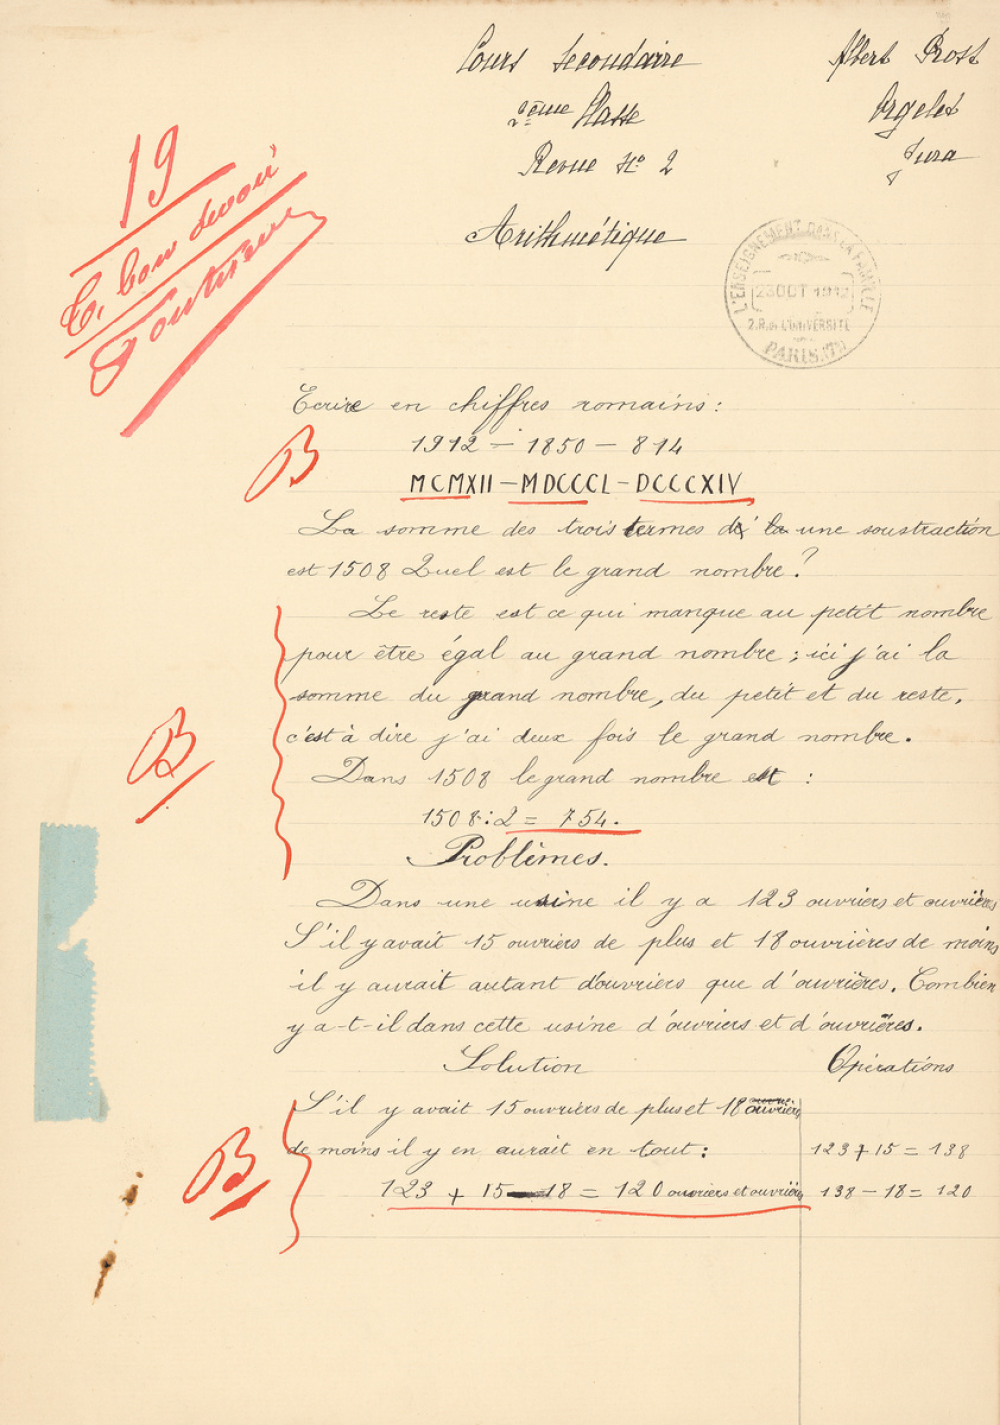 Cours Secondaire
2ème Classe
Revue No 2
Albert Prost
Orgelet
Jura
Arithmétique
19
T. bon devoir
L'ENSEIGNEMENT DANS LA FAMILLE
23 OCT 1912
2.R. de L'UNIVERSITÉ
PARIS
Ecrire en chiffres romains :
1912 – 1850 – 814
B
MCMXII – MDCCCL – DCCCXIV
La somme des trois termes d' la une soustraction
est 1508 Quel est le grand nombre ?
Le reste est ce qui manque au petit nombre
pour être égal au grand nombre ; ici j'ai la
somme du grand nombre, du petit et du reste,
c'est à dire j'ai deux fois le grand nombre.
B
Dans 1508 le grand nombre est :
1508 : 2 = 754.
Problèmes.
Dans une usine il y a 123 ouvriers et ouvrières
S'il y avait 15 ouvriers de plus et 18 ouvrières de moins
il y aurait autant d'ouvriers que d'ouvrières. Combien
y a-t-il dans cette usine d'ouvriers et d'ouvrières.
Solution
Opérations
S'il y avait 15 ouvriers de plus et 18 ouvrières
de moins il y en aurait en tout :
123 + 15 = 138
B
123 + 15 – 18 = 120 ouvriers et ouvrières
138 – 18 = 120